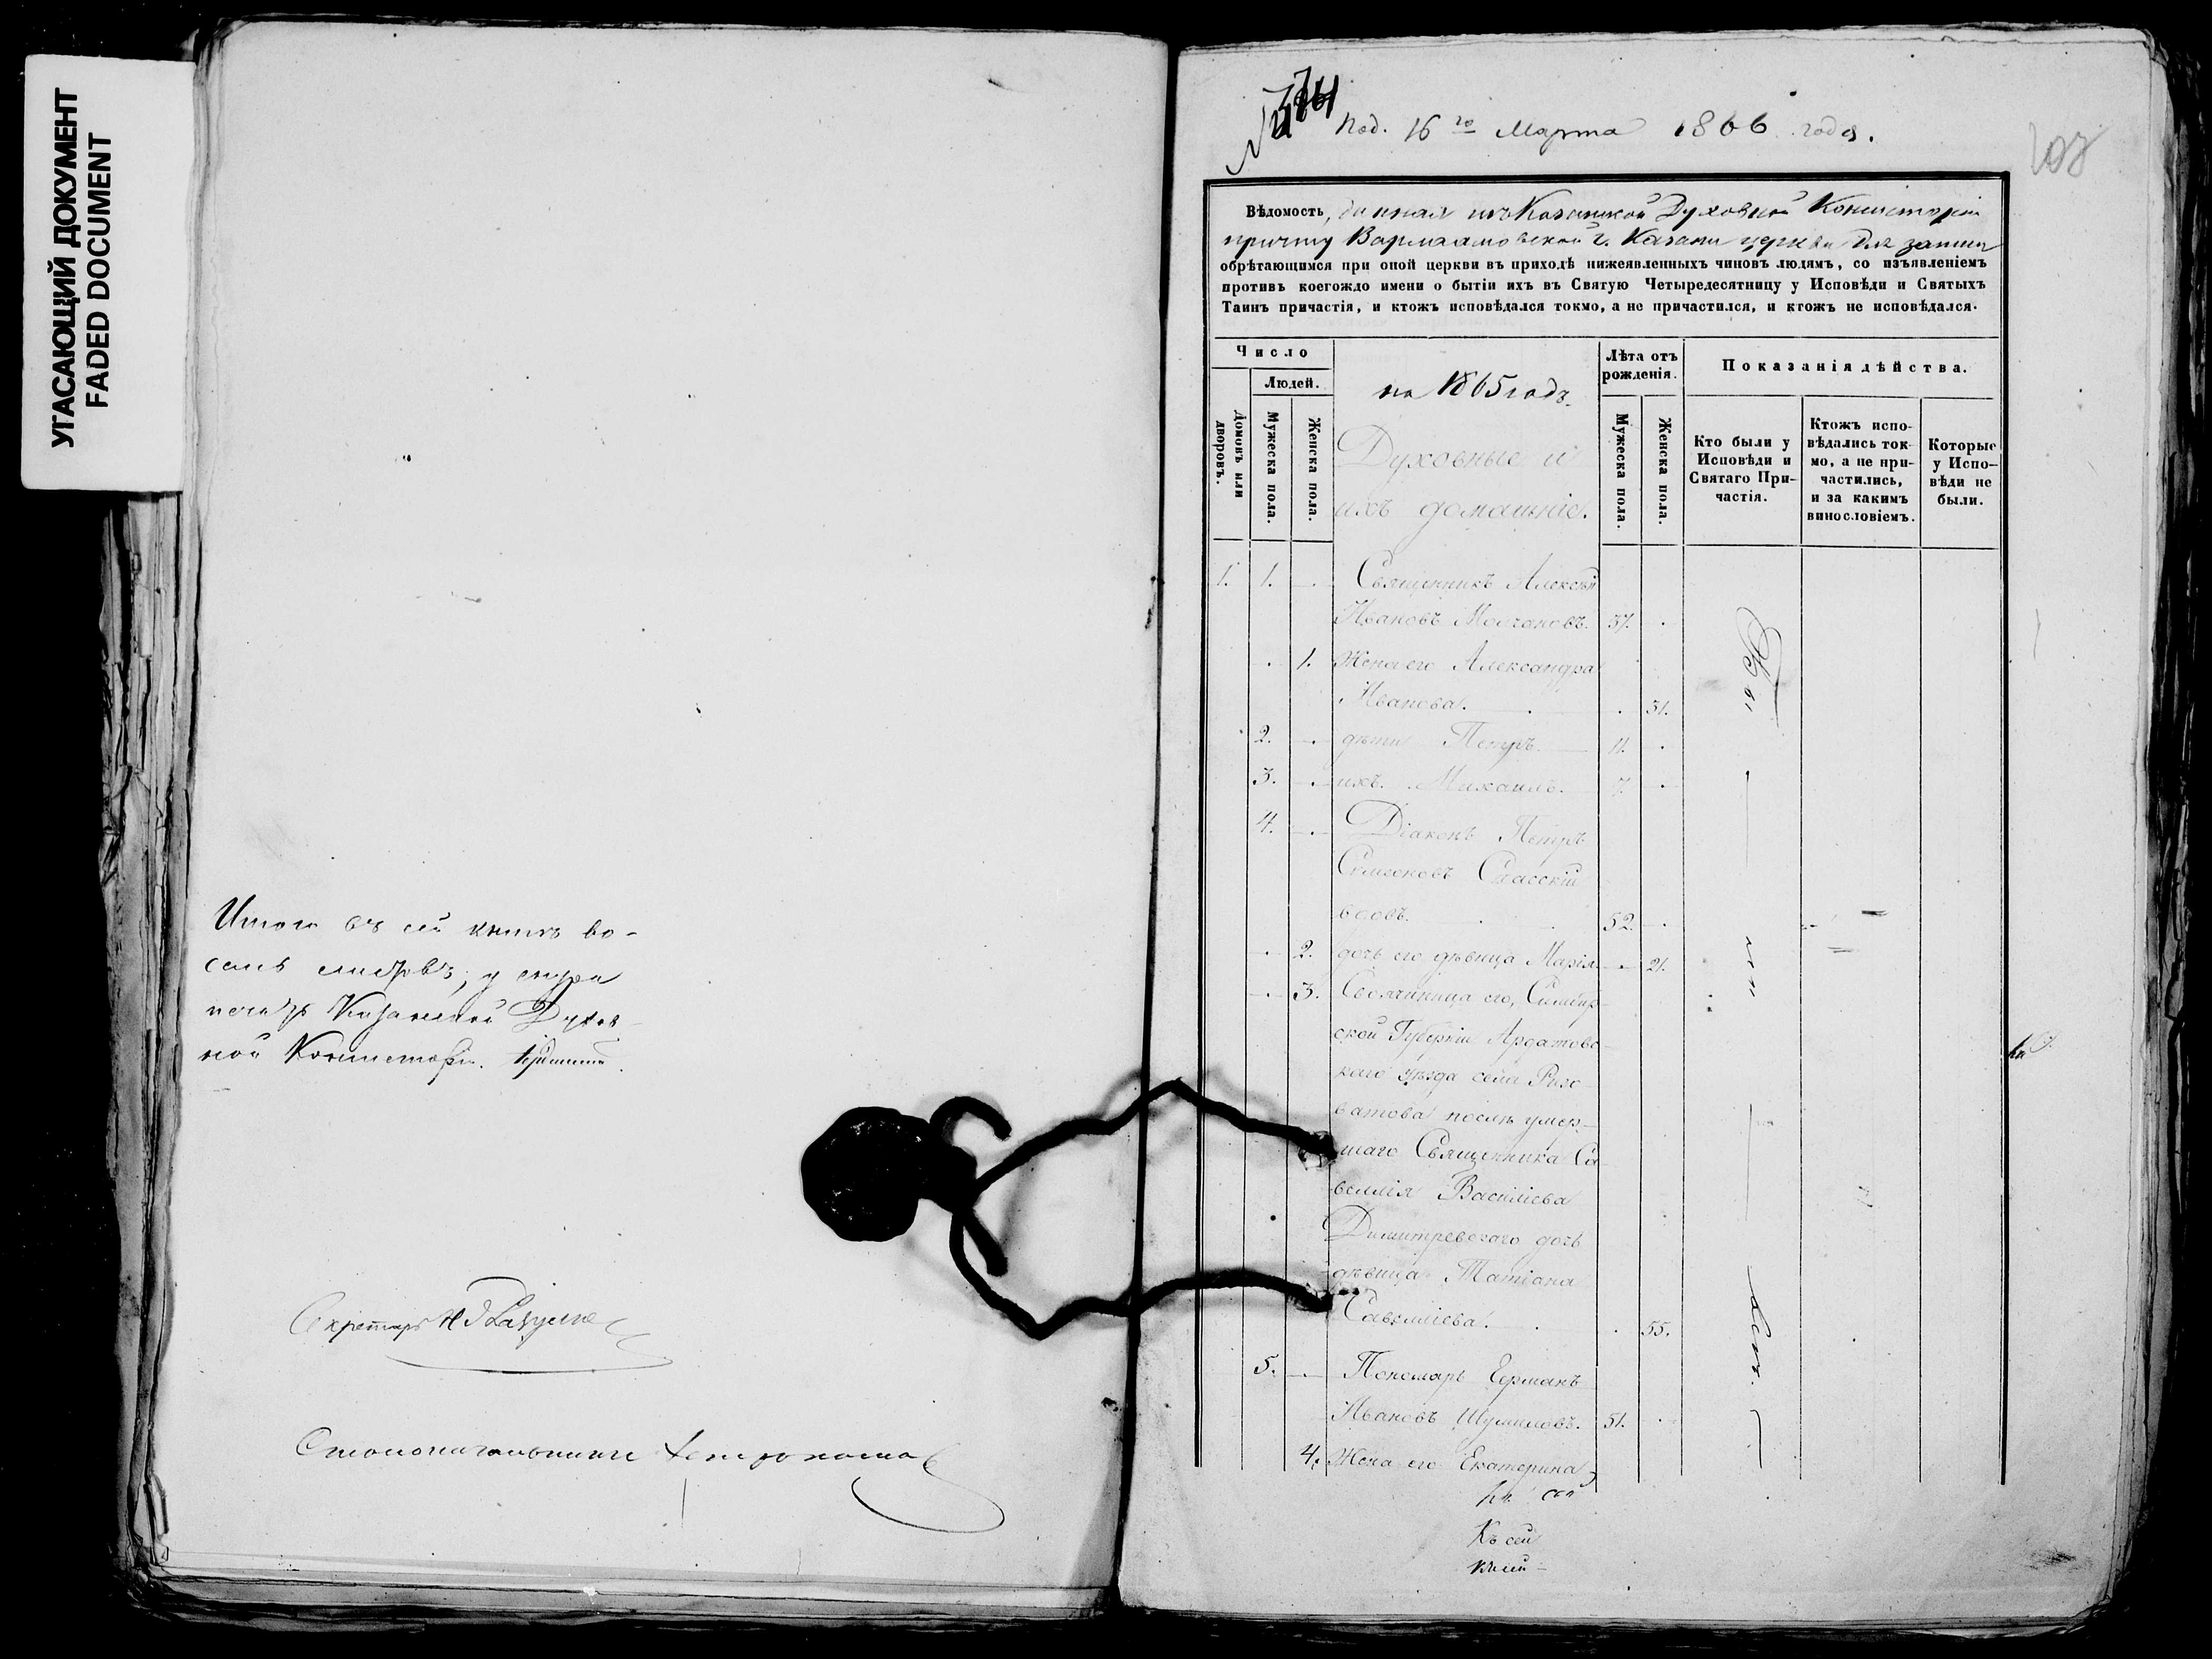 УГАСАЮЩИЙ ДОКУМЕНТ
FADED DOCUMENT
Итого въ сей книгѣ во-
семь листовъ, у сего
печать Казанской Духов-
ной Консисторіи.
Секретарь
Столоначальникъ
Под. 16го Марта 1866 года.
207
Вѣдомость, данная изъ Казанской Духовной Консисторіи
причту Варлаамовской г. Казани церкви для записи
обрѣтающимся при оной церкви въ приходѣ нижеявленныхъ чиновъ людямъ, со изъявленіемъ
противъ коегождо имени о бытіи ихъ въ Святую Четыредесятницу у Исповѣди и Святыхъ
Таинъ причастія, и ктожъ исповѣдался токмо, а не причастился, и ктожъ не исповѣдался.
Число
Людей.
Домовъ или дворовъ.
Мужеска пола.
Женска пола.
на 1865 годъ.
Духовные и
ихъ домашніе.
Лѣта отъ рожденія.
Мужеска пола.
Женска пола.
Показанія дѣйства.
Кто были у Исповѣди и Святаго При-частія.
Ктожъ испо-вѣдались ток-мо, а не при-частились, и за какимъ винословіемъ.
Которые у Испо-вѣди не были.
1. 1. Священникъ Алексѣй
Ивановъ Молчановъ. 37.
1. Жена его Александра
Иванова. 31.
2. дѣти Петръ 11.
3. ихъ. Михаилъ. 7.
4. Діаконъ Петръ
Симеоновъ Спасскій
вдовъ. 52.
2. дочь его дѣвица Марія 21.
3. Своячиница его, Симбир-
ской Губерніи Ардатовс-
каго уѣзда села
послѣ умер-
шаго Священника Са-
веллія Василіева
Димитревскаго дочь
дѣвица Татіана
Савелліева. 55.
5. Пономарь Германъ
Ивановъ Шумиловъ. 51.
4. Жена его Екатерина
Къ сей
Къ сей